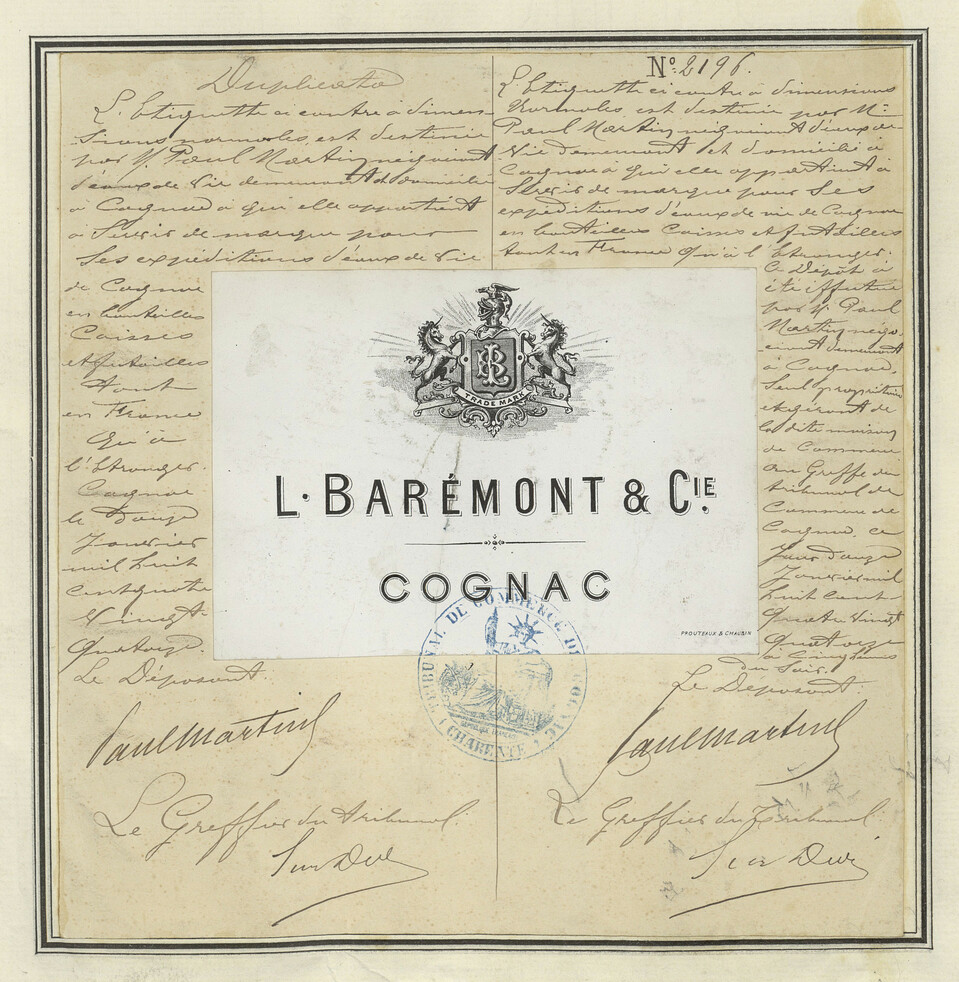 Duplicata
L'Etiquette ci contre à dimen-
sions normales est destinée
par M. Paul Martin négociant
d'eaux de vie demeurant et domicilié
à Cognac à qui elle appartient
à Servir de marque pour
Ses expéditions d'eaux de Vie
de Cognac
en bouteilles
Caisses
et futailles
tant
en France
qu'à
l'Etranger.
Cognac
le douze
Janvier
mil huit
cent quatre
Vingt
quatorze.
Le Déposant.
Paul Martin
Le Greffier du tribunal.
No. 2196.
L'Etiquette ci contre à dimensions
Normales est destinée par Mr
Paul Martin négociant d'eaux de
Vie demeurant et domicilié à
Cognac à qui elle appartient à
Servir de marque pour Ses
expéditions d'eaux de vie de Cognac
en bouteilles Caisses et futailles
tant en France qu'à l'Etranger.
Ce Dépôt a
été effectué
par M. Paul
Martin négo-
ciant demeurant
à Cognac,
Seul propriétaire
et gérant de
la dite maison
de Commerce
au Greffe du
tribunal de
Commerce de
Cognac, ce
Jour douze
Janvier mil
huit cent
quatre Vingt
quatorze
à Cinq heures
du Soir.
Le Déposant.
Paul Martin
Le Greffier du Tribunal.
LB
TRADE MARK
L. BARÉMONT & CIE.
COGNAC
PROUTEAUX & CHAUBIN
TRIBUNAL DE COMMERCE DE COGNAC
CHARENTE